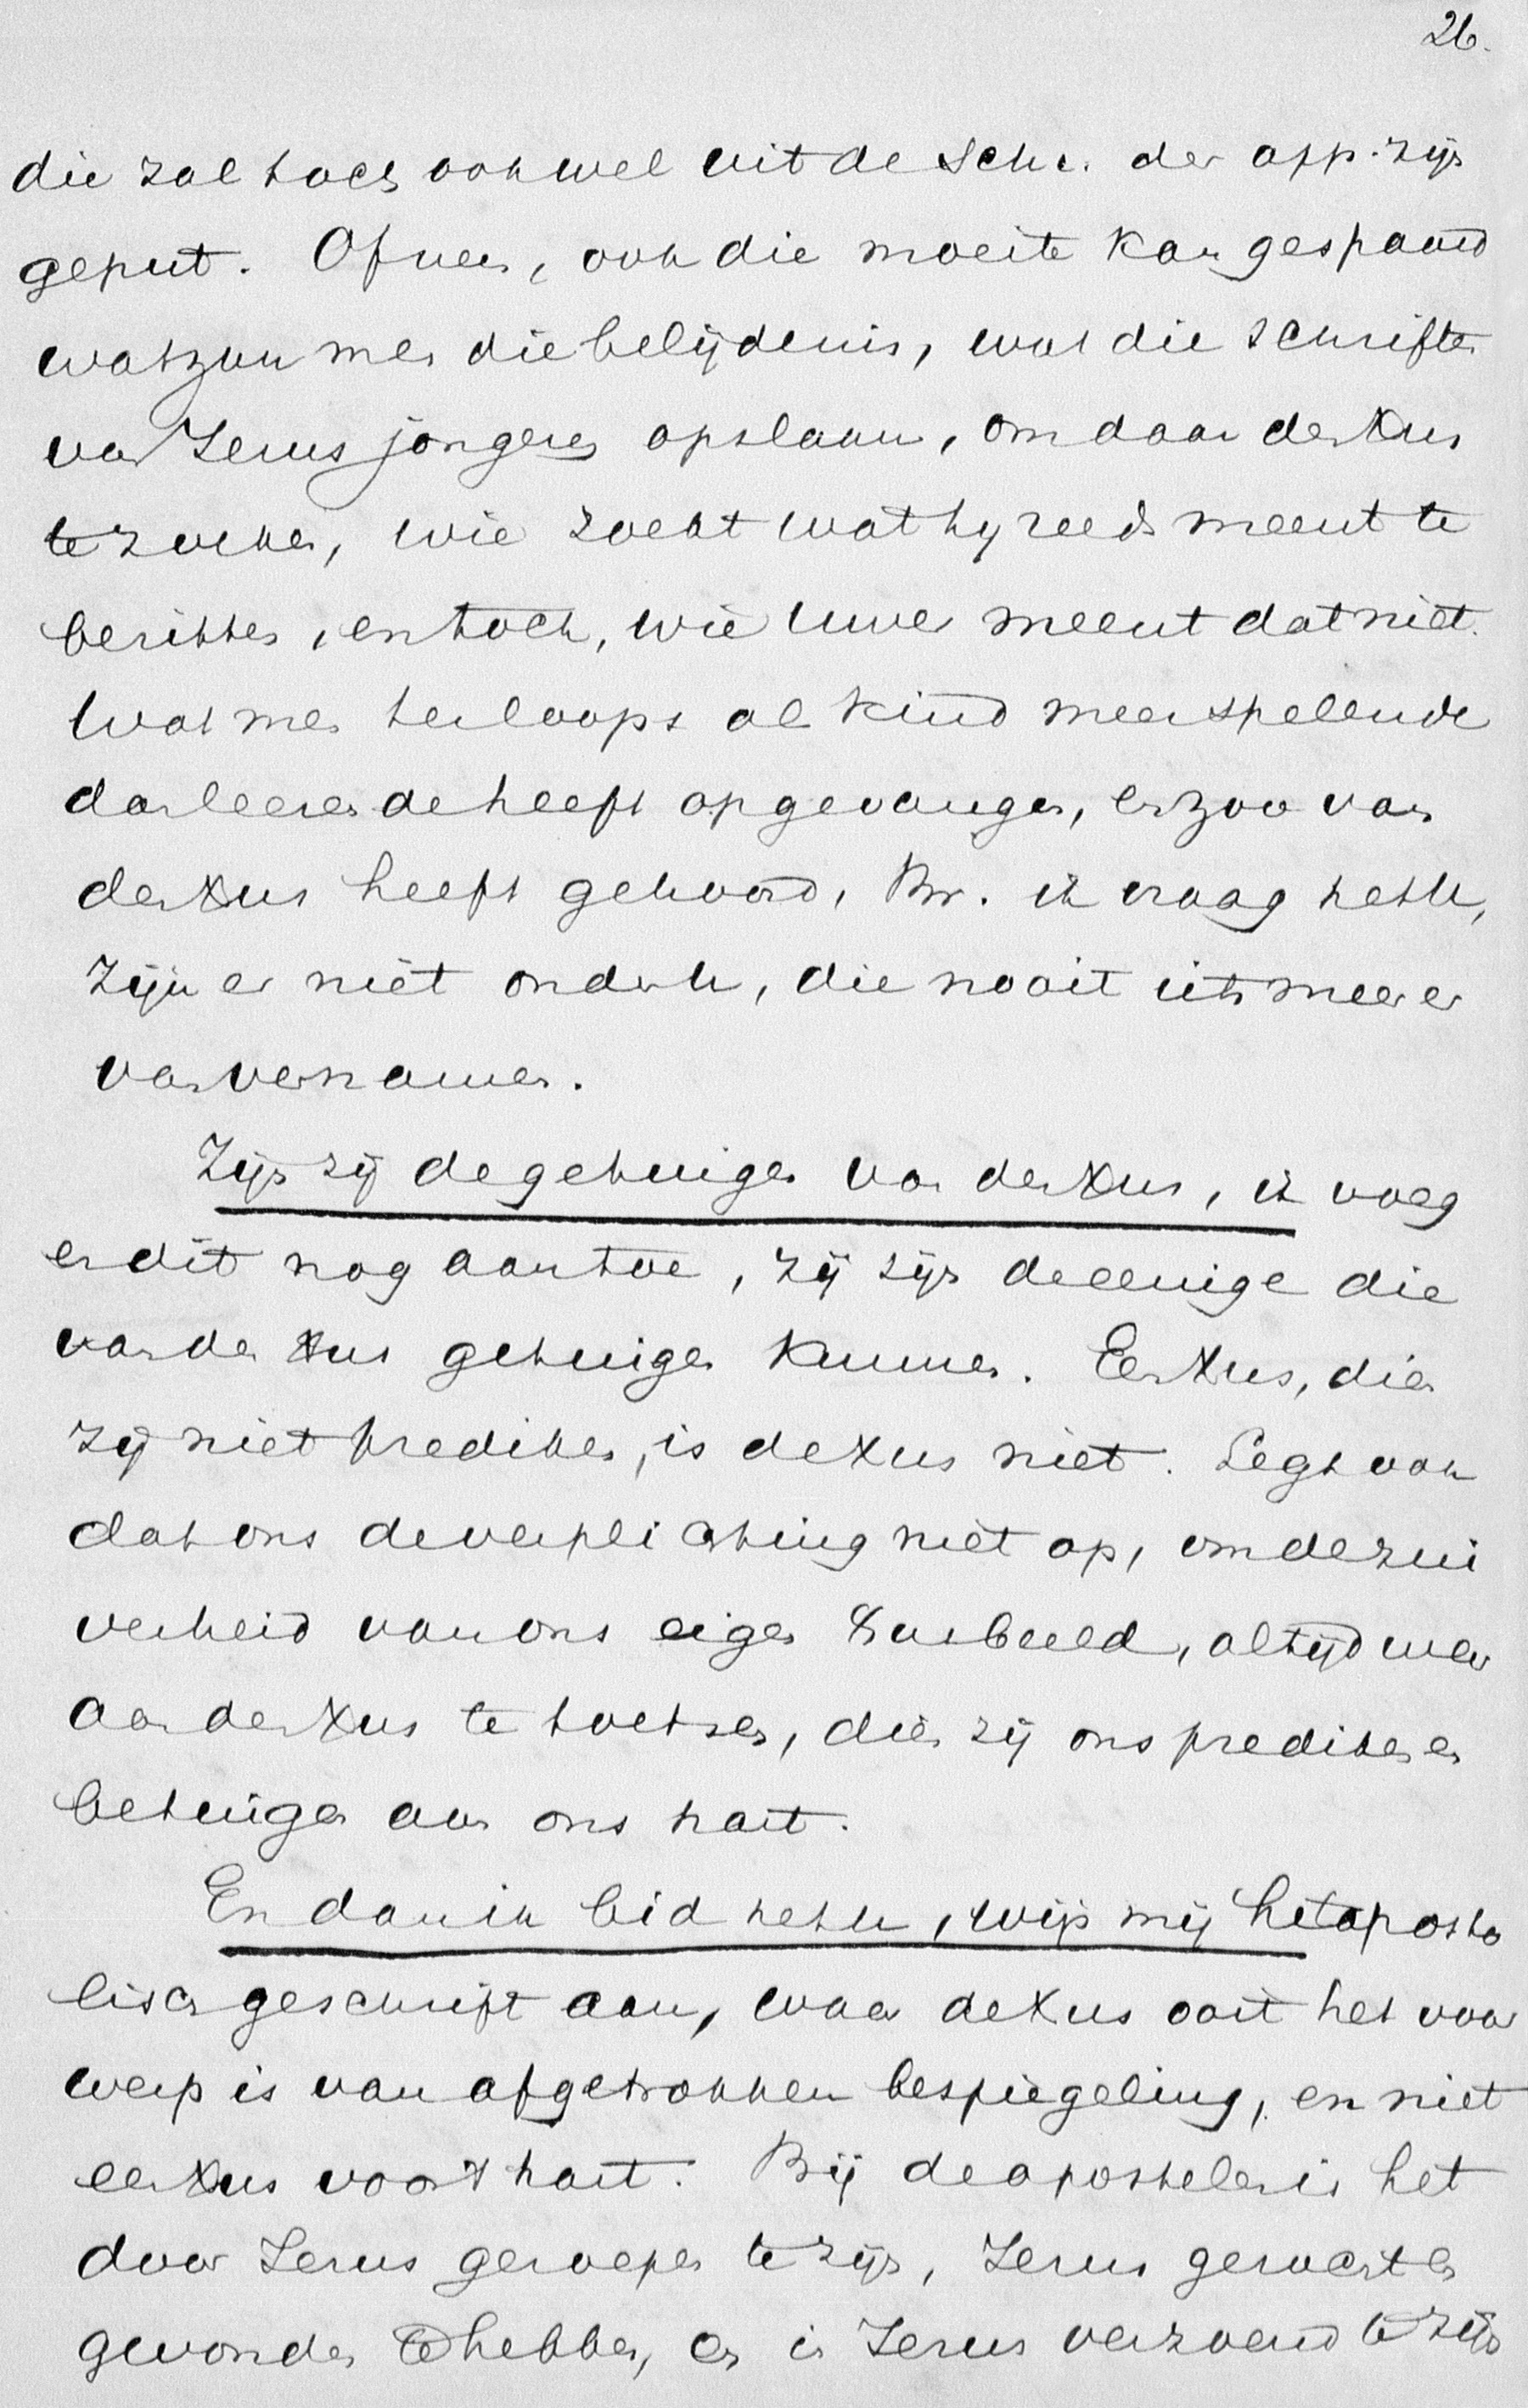 26.
die zal toch ook wel uit de Schr. der app. zijn
geput. Of neen, ook die moeite kan gespaard
wat zou men die belijdenis, wat die schriften
van Jezus jongeren opslaan, om daar den Xus
te zoeken, wie zoekt wat hy reeds meent te
bezitten, en toch, wie uwer meent dat niet.
Wat men terloops al kind meer spelende
dan leerende heeft opgevangen, en zoo van
den Xus heeft gehoord, Br. ik vraag het U,
zijn er niet onder U, die nooit iets meer er
van vernamen.
Zijn zij de getuigen van den Xus, ik voeg
er dit nog aan toe, zij zijn de eenige die
van den Xus getuigen kunnen. Een Xus, dien
zij niet prediken, is de Xus niet. Legt ook
dat ons de verplichting niet op, om de zui
verheid van ons eigen Xusbeeld, altijd weer
aan den Xus te toetsen, dien zij ons prediken en
betuigen aan ons hart.
En dan ik bid het U, wijs mij het aposto
lisch geschrift aan, waar de Xus ooit het voor
werp is van afgetrokken bespiegeling, en niet
een Xus voor 't hart. Bij de apostelen is het
door Jezus geroepen te zijn, Jezus gezocht en
gevonden te hebben, en in Jezus verzoend te zijn